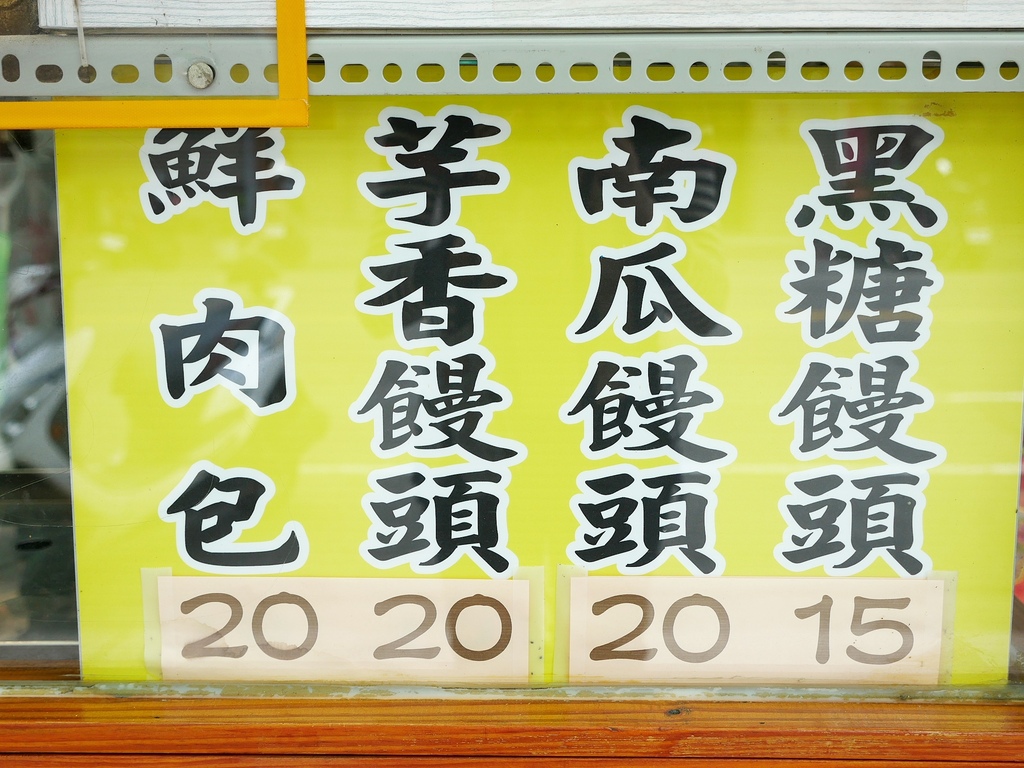 黑糖饅頭
15
南瓜饅頭
20
芋香饅頭
20
鮮肉包
20